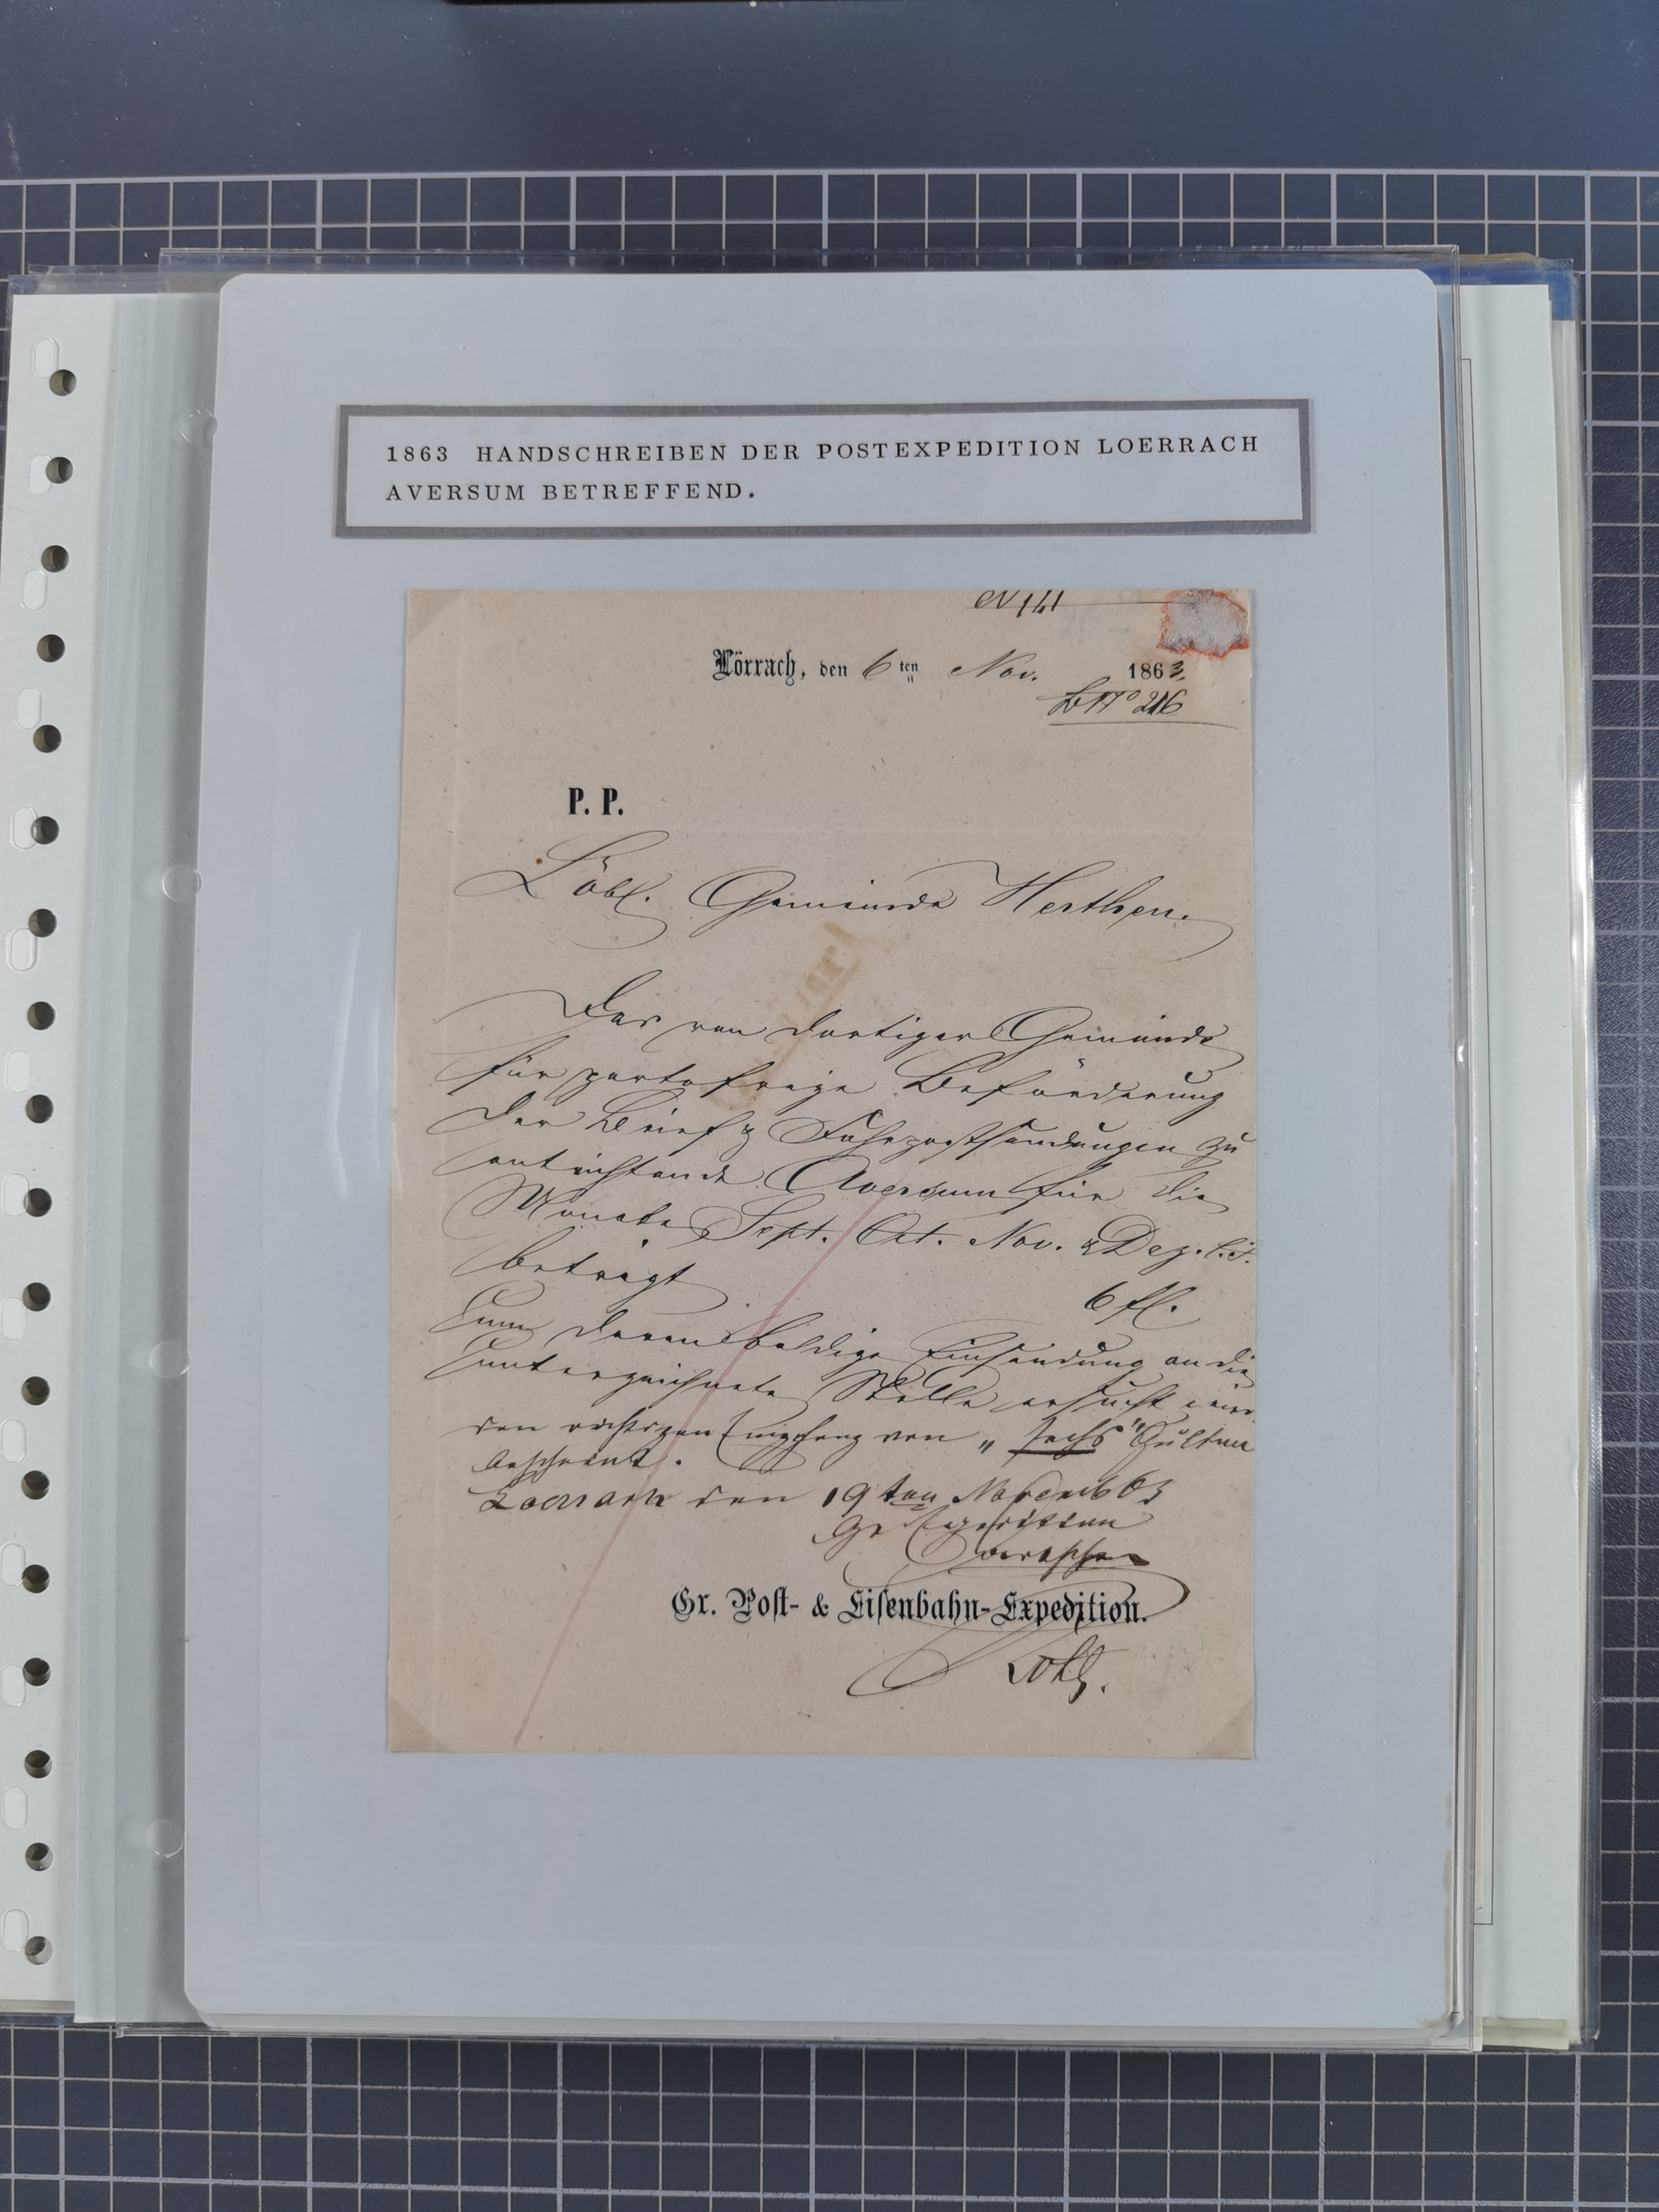 1863 HANDSCHREIBEN DER POSTEXPEDITION LOERRACH
AVERSUM BETREFFEND.
Lörrach, den 6 ten Nov. 1863.
No 216
P. P.
Löbl. Gemeinde Herthen.
Das von dortiger Gemeinde
für portofreye Beförderung
der Brief & Fahrpostsendungen zu
entrichtende Aversum für die
Monate Sept. Oct. Nov. & Dez. l. J.
beträgt 6 fl.
um deren baldige Einsendung an die
unterzeichnete Stelle ersucht wird.
den richtigen Empfang von „sechs" Gulden
bescheint.
Loerrach den 19ten Novemb 63
Gr Expedition
Gr. Post- & Eisenbahn-Expedition.